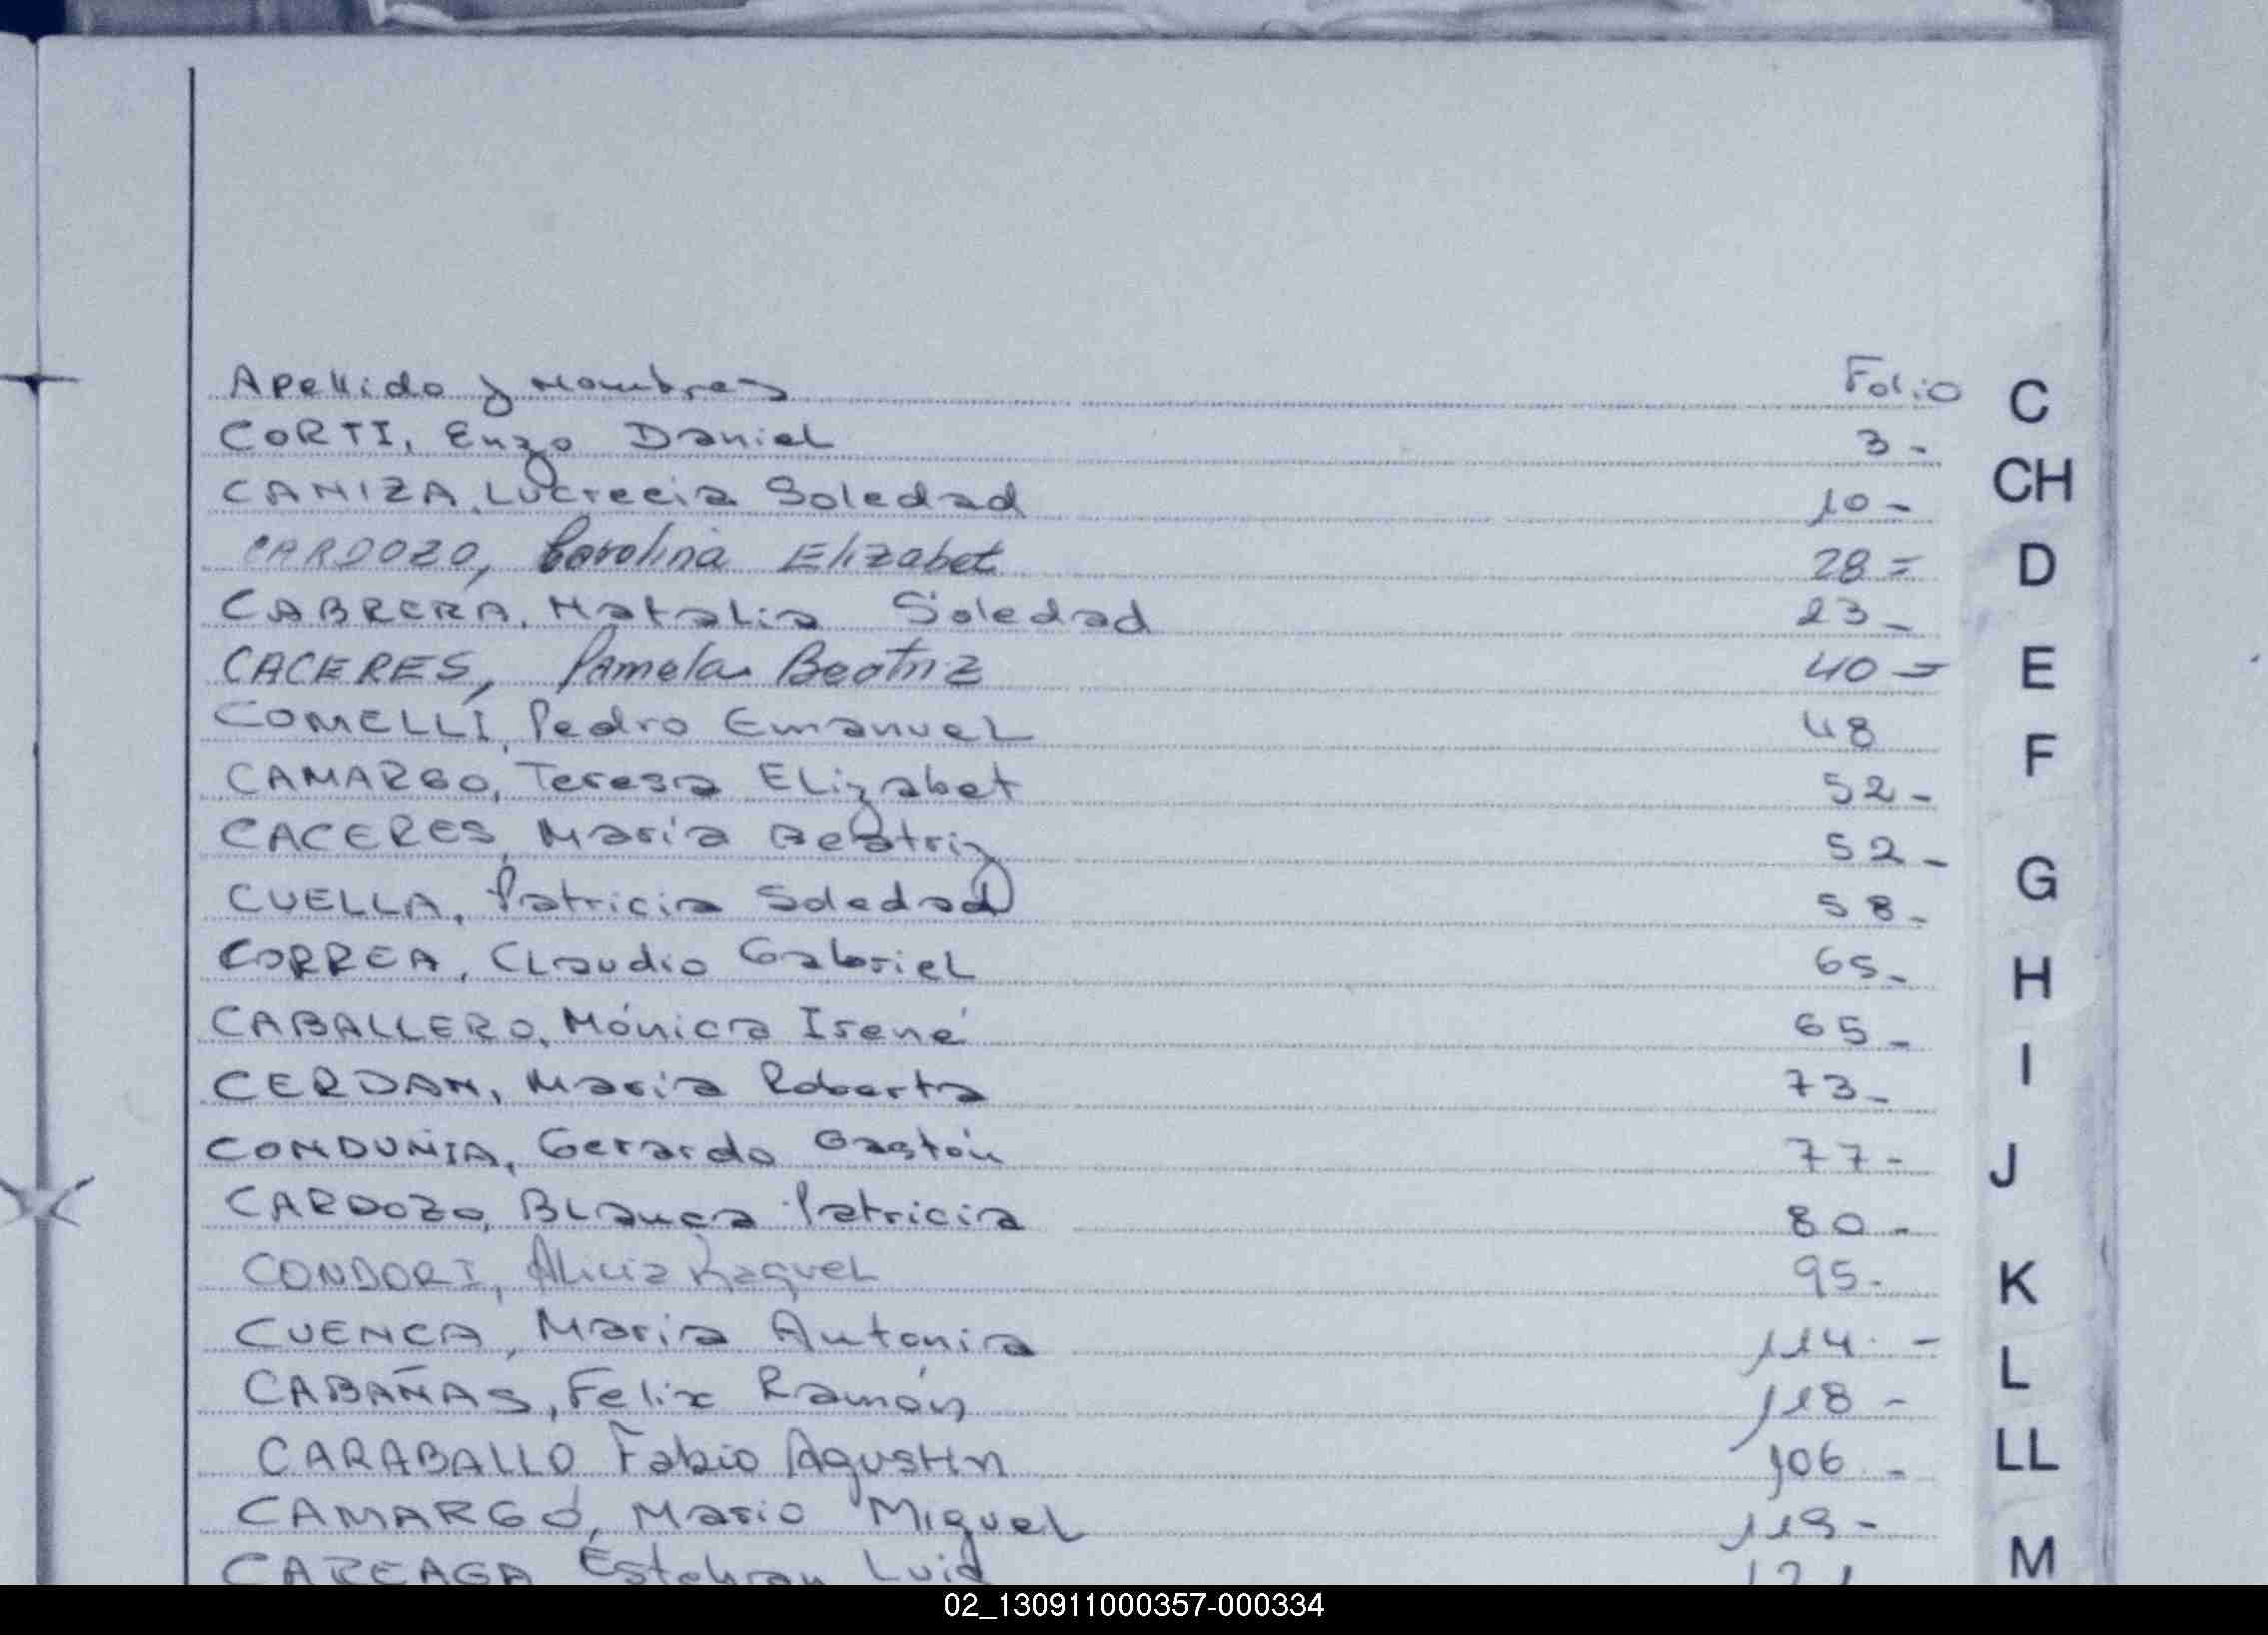 Apellido y Nombres Folio C
CORTI, Enzo Daniel 3-
CANIZA, Lucrecia Soledad 10- CH
CARDOZO, Carolina Elizabet 28= D
CABRERA, Natalia Soledad 23-
CACERES, Pamela Beatriz 40= E
COMELLI, Pedro Emanuel 48
CAMARGO, Teresa Elizabet 52- F
CACERES, María Beatriz 52-
CUELLA, Patricia Soledad 58- G
CORREA, Claudio Gabriel 65-
CABALLERO, Mónica Irené 65- H
CERDAN, María Roberta 73- I
CONDUÑIA, Gerardo Gastón 77- J
CARDOZO, Blanca Patricia 80-
CONDORI, Alicia Raquel 95- K
CUENCA, Maria Antonia 114- L
CABAÑAS, Felix Ramón 118-
CARABALLO Fabio Agustin 106- LL
CAMARGO, Mario Miguel 119-
CAREAGA Esteban Luis 121 M
02_130911000357-000334